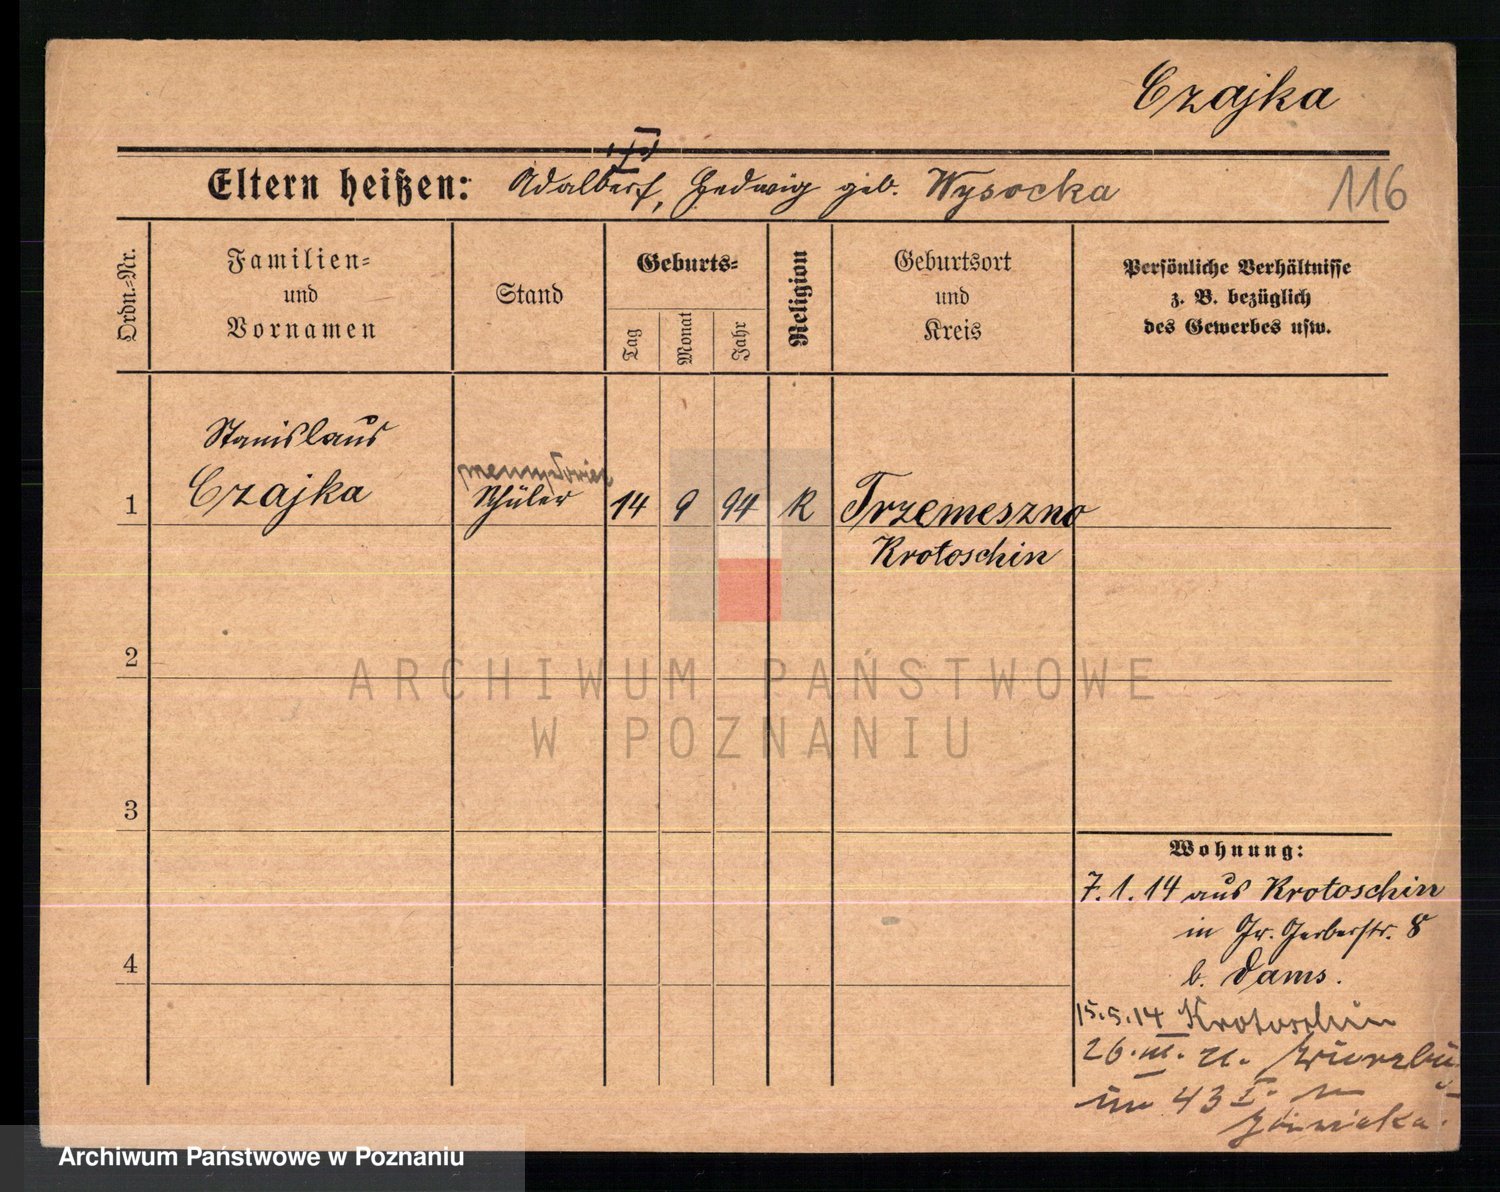 Czajka
Eltern heißen: Adalbert, Hedwig geb. Wysocka
116
Ordn.-Nr.
Familien-
und
Vornamen
Stand
Geburts-
Tag
Monat
Jahr
Religion
Geburtsort
und
Kreis
Persönliche Verhältnisse
z. B. bezüglich
des Gewerbes usw.
Stanislaus
1 Czajka Schüler 14 9 94 K Trzemeszno
Krotoschin
2
ARCHIWUM PAŃSTWOWE
W POZNANIU
3
Wohnung:
7.1.14 aus Krotoschin
in Gr. Gerberstr. 8
4
b. Dams.
15.5.14 Krotoschin
26.III.
43 I.
Archiwum Państwowe w Poznaniu